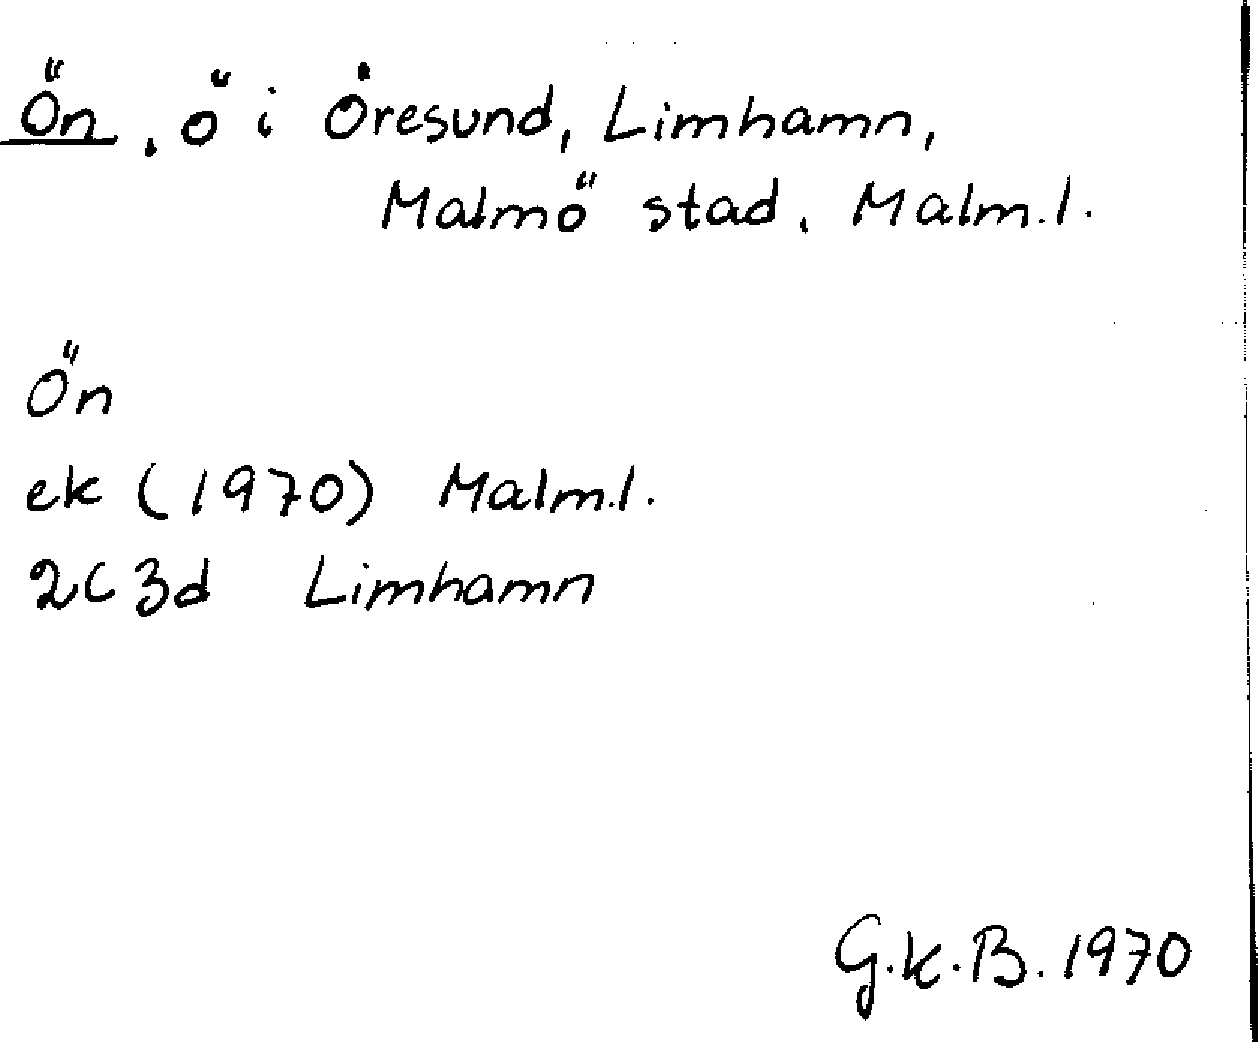 Ön, ö i Öresund, Limhamn,
Malmö stad, Malm.l.
Ön
ek (1970) Malm.l.
2C3d Limhamn
G.K.B. 1970